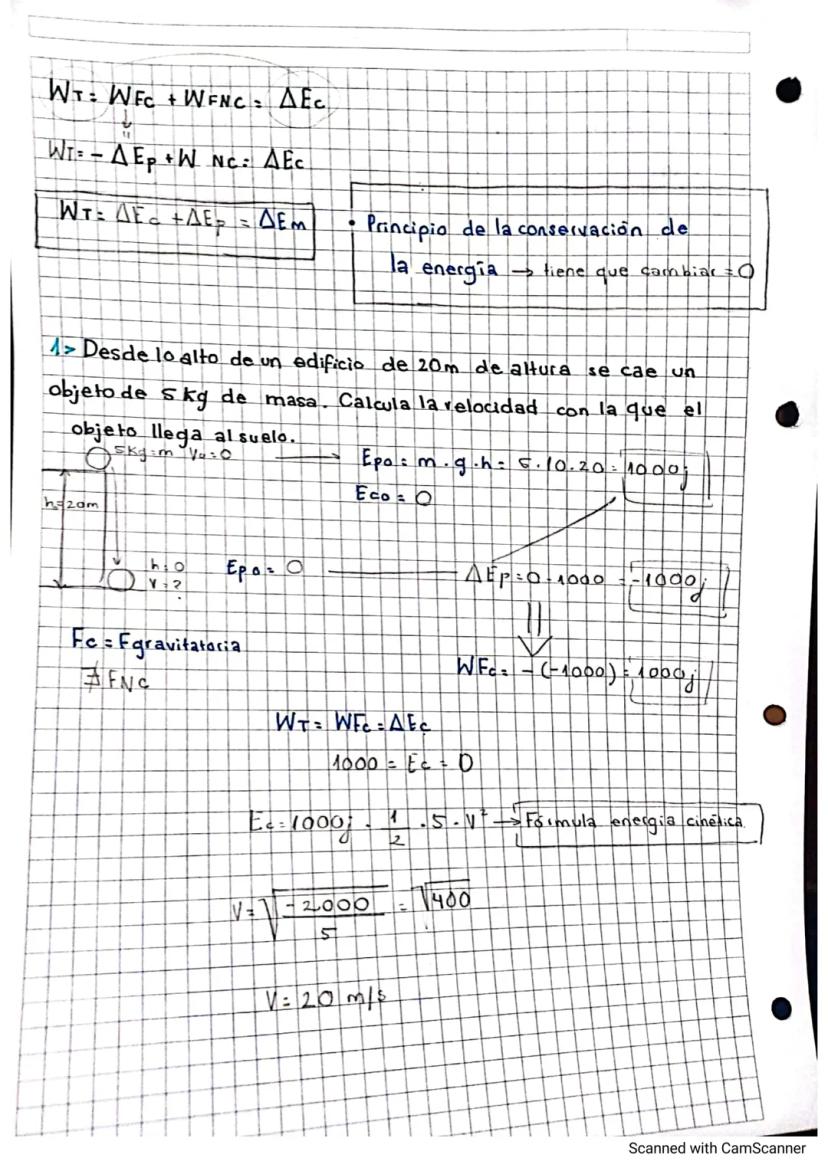 WT = WFC + WFNC = ΔEc
WT = - ΔEp + W NC = ΔEc
WT = ΔEc + ΔEp = ΔEm
• Principio de la conservación de
la energía → tiene que cambiar = 0
1> Desde lo alto de un edificio de 20m de altura se cae un
objeto de 5 kg de masa. Calcula la velocidad con la que el
objeto llega al suelo.
5kg = m V0 = 0 → Epo = m . g . h = 5 . 10 . 20 = 1000j
Eco = 0
h = 20m
h = 0
V = ?
Epo = 0
ΔEp = 0 - 1000 = -1000j
Fc = Fgravitatoria
∄ FNC
WFc = - (-1000) = 1000j
WT = WFc = ΔEc
1000 = Ec - 0
Ec = 1000j . 1/2 . 5 . V² → Fórmula energía cinética
V = √-2000/5 = √400
V = 20 m/s
Scanned with CamScanner